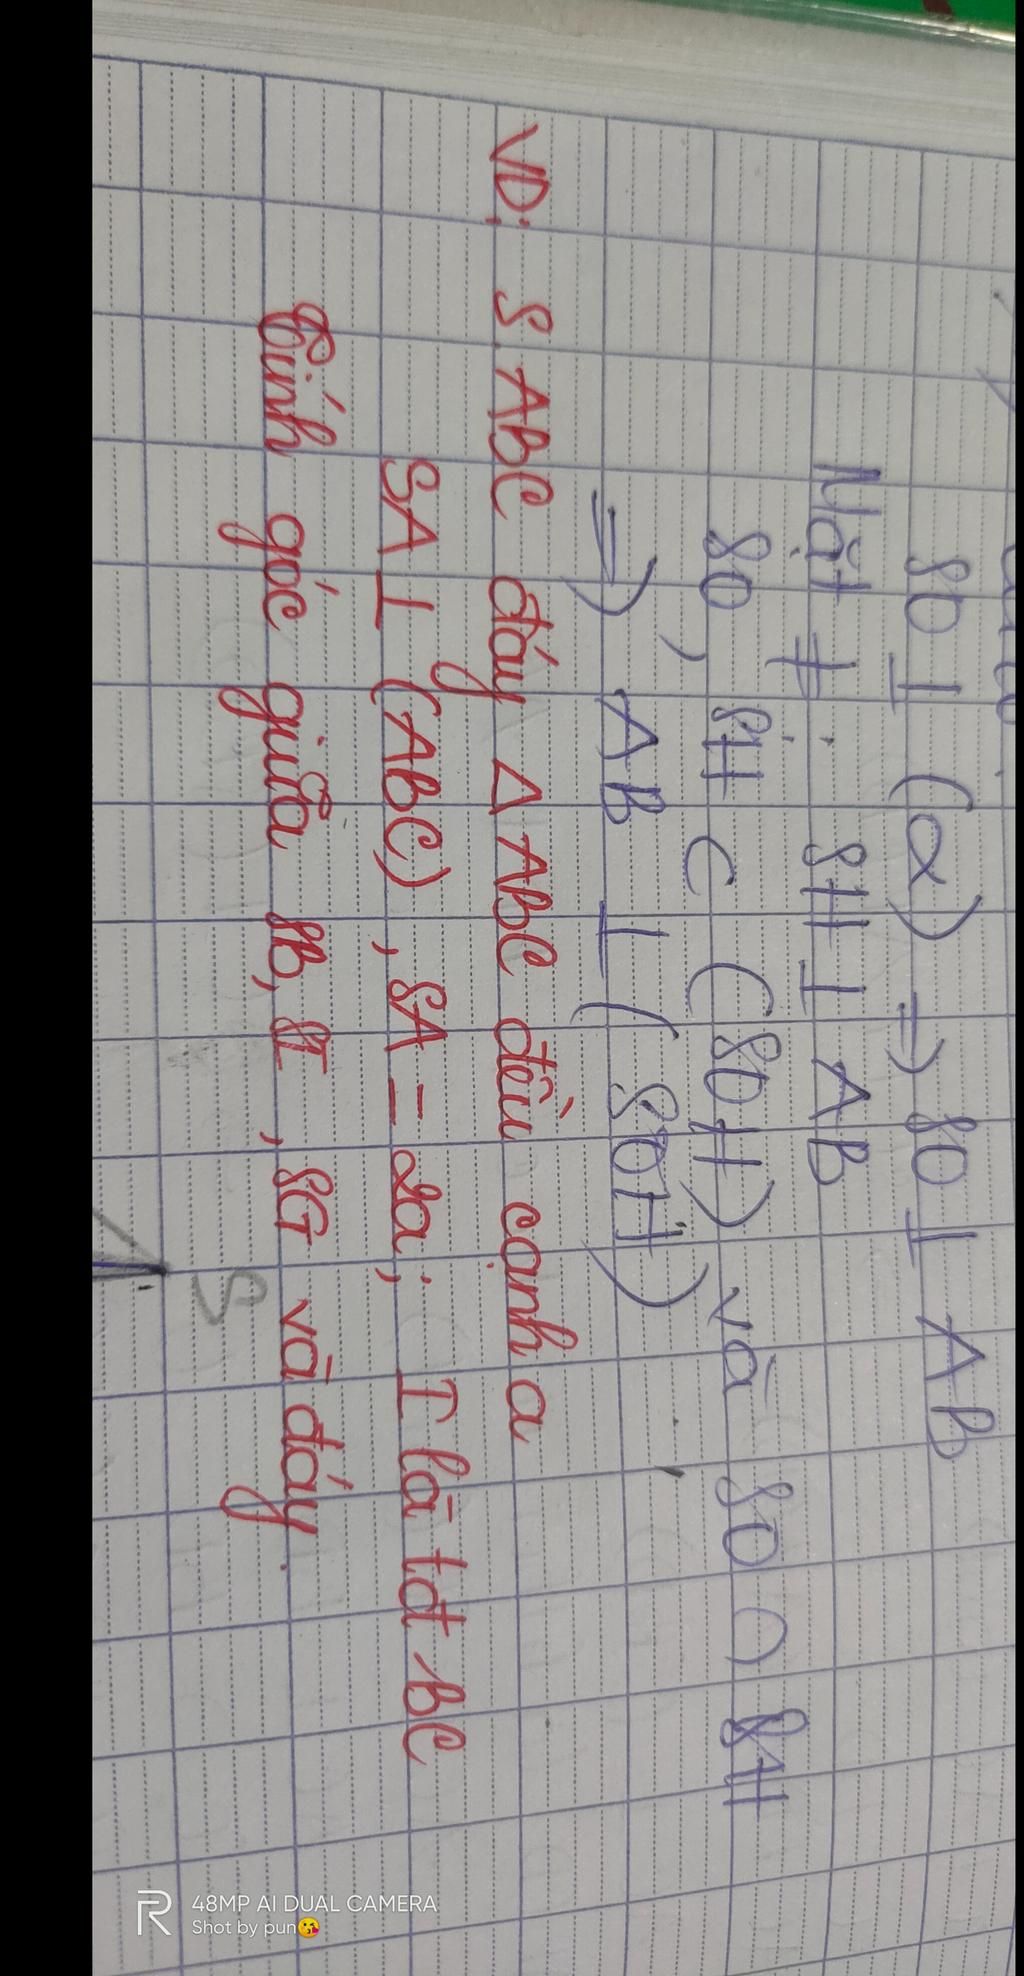 SO ⊥ (α) ⇒ SO ⊥ AB
Mặt ≠: SH ⊥ AB
SO, SH ⊂ (SOH) và SO ∩ SH
⇒ AB ⊥ (SOH)
VD: S.ABC đáy Δ ABC đều cạnh a
SA ⊥ (ABC), SA = 2a; I là tđ BC
Tính góc giữa SB, SI, SG và đáy.
S
48MP AI DUAL CAMERA
Shot by pun😘